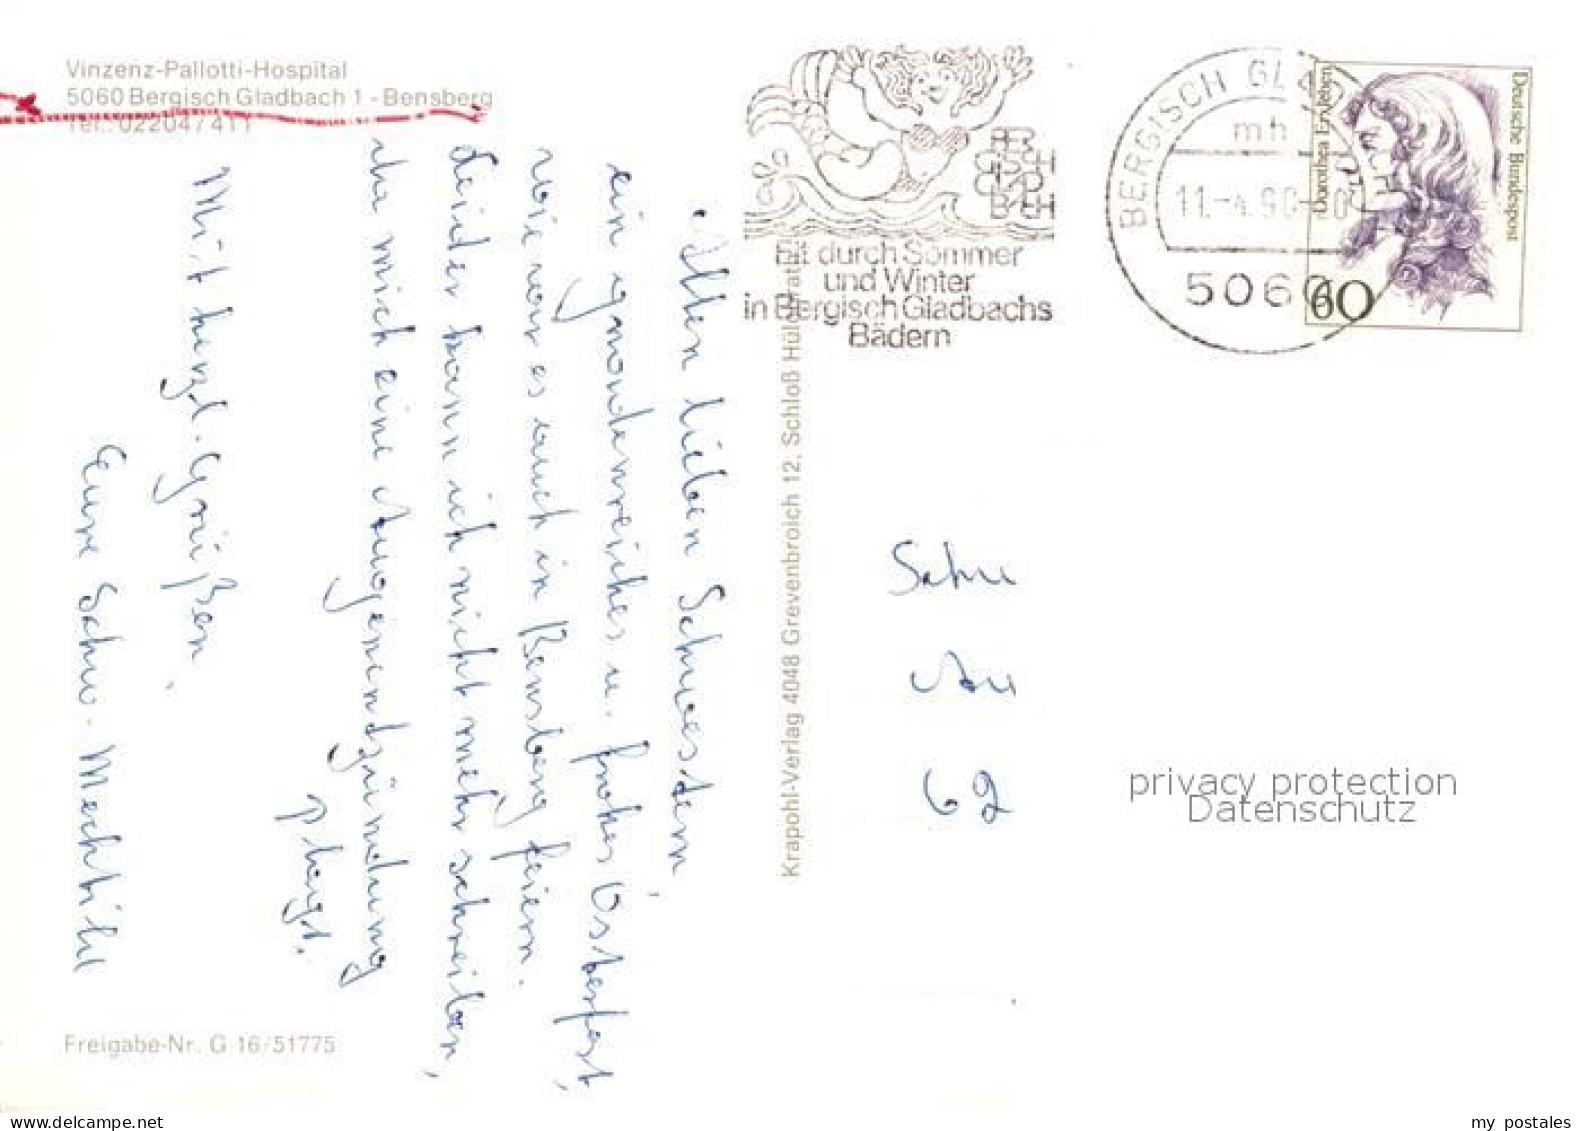 Vinzenz-Pallotti-Hospital
5060 Bergisch Gladbach 1 - Bensberg
Tel.: 02204/411
Allen lieben Schwestern,
ein gnadenreiches u. frohes Osterfest,
wie wir es auch in Bensberg feiern.
Leider kann ich nicht mehr schreiben,
da mich eine Augenentzündung
plagt.
Mit herzl. Grüßen.
Eure Schw. Mechtild
Freigabe-Nr. G 16/51775
Krapohl-Verlag 4048 Grevenbroich 12, Schloß Hülchrath
BERGISCH GLADBACH
Fit durch Sommer
und Winter
in Bergisch Gladbachs
Bädern
BERGISCH GLADBACH
mh
11.-4.90
5060
Dorothea Erxleben
Deutsche Bundespost
60
Schw
62
privacy protection
Datenschutz
www.delcampe.net
my postales